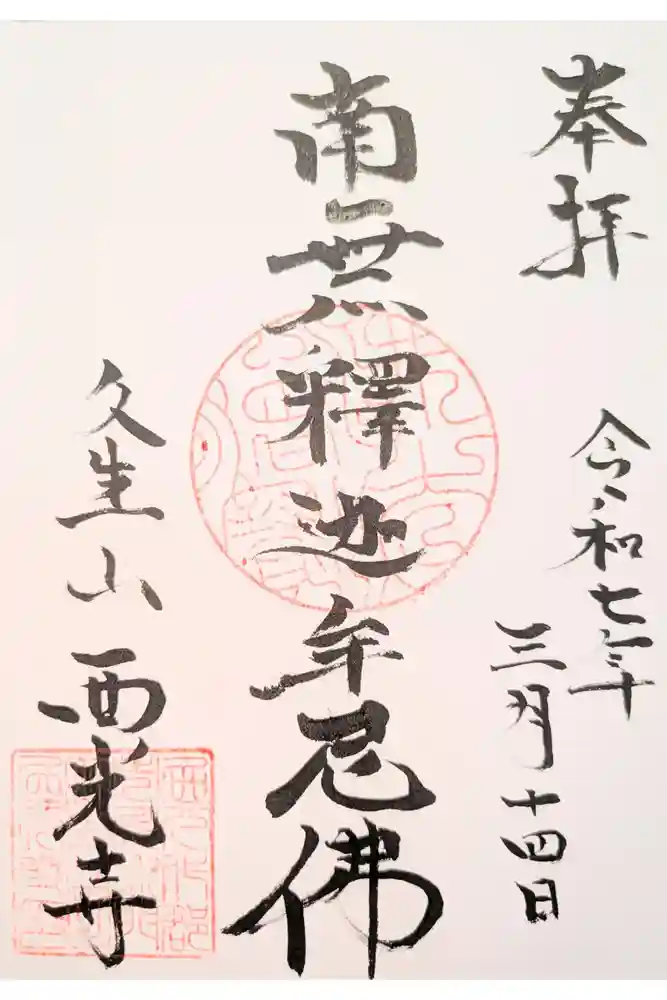 奉拝
令和七年
三月十四日
南無釋迦牟尼佛
久生山
西光寺